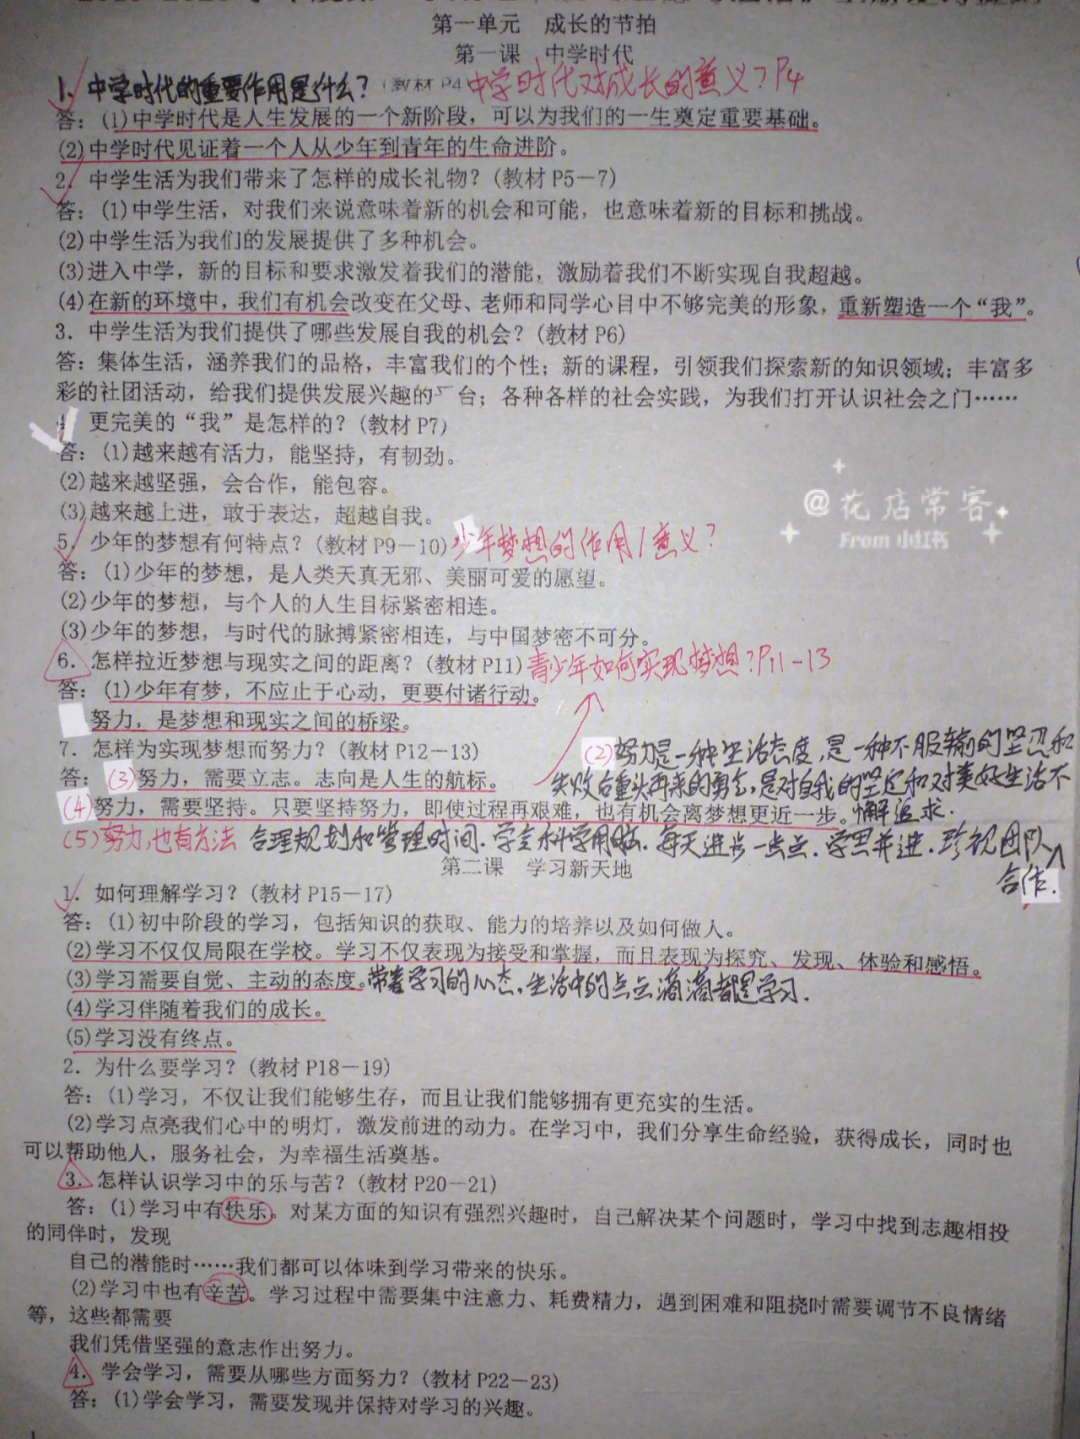 第一单元 成长的节拍
第一课 中学时代
1. 中学时代的重要作用是什么？(教材 P4 中学时代对成长的意义？P4
答：(1)中学时代是人生发展的一个新阶段，可以为我们的一生奠定重要基础。
(2)中学时代见证着一个人从少年到青年的生命进阶。
2. 中学生活为我们带来了怎样的成长礼物？(教材 P5－7)
答：(1)中学生活，对我们来说意味着新的机会和可能，也意味着新的目标和挑战。
(2)中学生活为我们的发展提供了多种机会。
(3)进入中学，新的目标和要求激发着我们的潜能，激励着我们不断实现自我超越。
(4)在新的环境中，我们有机会改变在父母、老师和同学心目中不够完美的形象，重新塑造一个“我”。
3. 中学生活为我们提供了哪些发展自我的机会？(教材 P6)
答：集体生活，涵养我们的品格，丰富我们的个性；新的课程，引领我们探索新的知识领域；丰富多
彩的社团活动，给我们提供发展兴趣的 台；各种各样的社会实践，为我们打开认识社会之门……
更完美的“我”是怎样的？(教材 P7)
答：(1)越来越有活力，能坚持，有韧劲。
(2)越来越坚强，会合作，能包容。
(3)越来越上进，敢于表达，超越自我。
@花店常客
From 小红书
5. 少年的梦想有何特点？(教材 P9－10) 少年梦想的作用/意义？
答：(1)少年的梦想，是人类天真无邪、美丽可爱的愿望。
(2)少年的梦想，与个人的人生目标紧密相连。
(3)少年的梦想，与时代的脉搏紧密相连，与中国梦密不可分。
6. 怎样拉近梦想与现实之间的距离？(教材 P11) 青少年如何实现梦想？P11-13
答：(1)少年有梦，不应止于心动，更要付诸行动。
努力，是梦想和现实之间的桥梁。
7. 怎样为实现梦想而努力？(教材 P12－13)
(2)努力是一种生活态度，是一种不服输的坚忍和
失败后重头再来的勇气，是对自我的坚定和对美好生活不
懈追求.
答：(3)努力，需要立志。志向是人生的航标。
(4)努力，需要坚持。只要坚持努力，即使过程再艰难，也有机会离梦想更近一步。
(5)努力，也有方法 合理规划和管理时间. 学会科学用脑. 每天进步一点点. 学思并进. 珍视团队
合作.
第二课 学习新天地
1. 如何理解学习？(教材 P15－17)
答：(1)初中阶段的学习，包括知识的获取、能力的培养以及如何做人。
(2)学习不仅仅局限在学校。学习不仅表现为接受和掌握，而且表现为探究、发现、体验和感悟。
(3)学习需要自觉、主动的态度。带着学习的心态. 生活中的点点滴滴都是学习.
(4)学习伴随着我们的成长。
(5)学习没有终点。
2. 为什么要学习？(教材 P18－19)
答：(1)学习，不仅让我们能够生存，而且让我们能够拥有更充实的生活。
(2)学习点亮我们心中的明灯，激发前进的动力。在学习中，我们分享生命经验，获得成长，同时也
可以帮助他人，服务社会，为幸福生活奠基。
3. 怎样认识学习中的乐与苦？(教材 P20－21)
答：(1)学习中有快乐。对某方面的知识有强烈兴趣时，自己解决某个问题时，学习中找到志趣相投
的同伴时，发现
自己的潜能时……我们都可以体味到学习带来的快乐。
(2)学习中也有辛苦。学习过程中需要集中注意力、耗费精力，遇到困难和阻挠时需要调节不良情绪
等，这些都需要
我们凭借坚强的意志作出努力。
4. 学会学习，需要从哪些方面努力？(教材 P22－23)
答：(1)学会学习，需要发现并保持对学习的兴趣。